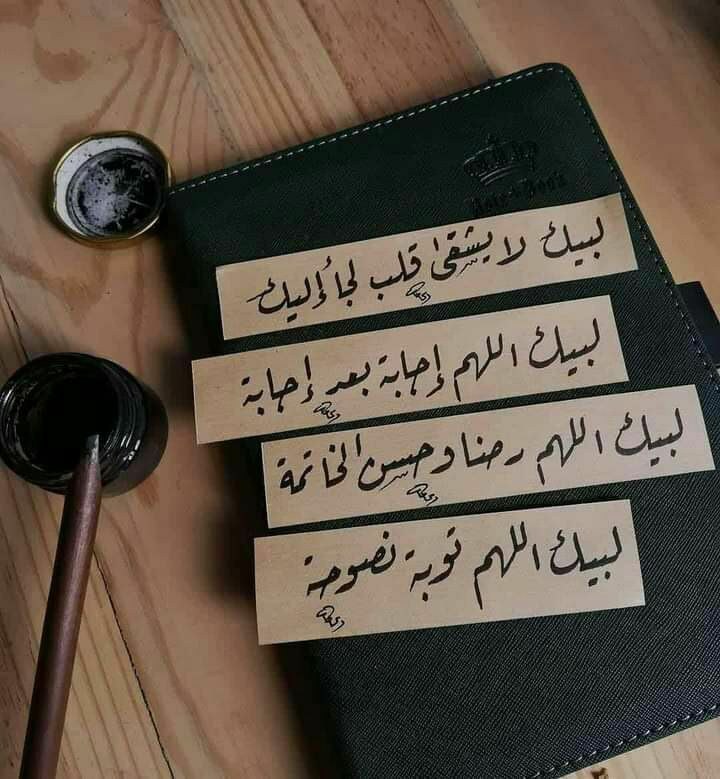 Note-Book
لبيك لا يشقى قلب لجأ إليك
لبيك اللهم إجابة بعد إجابة
لبيك اللهم رضا وحسن الخاتمة
لبيك اللهم توبة نصوحة